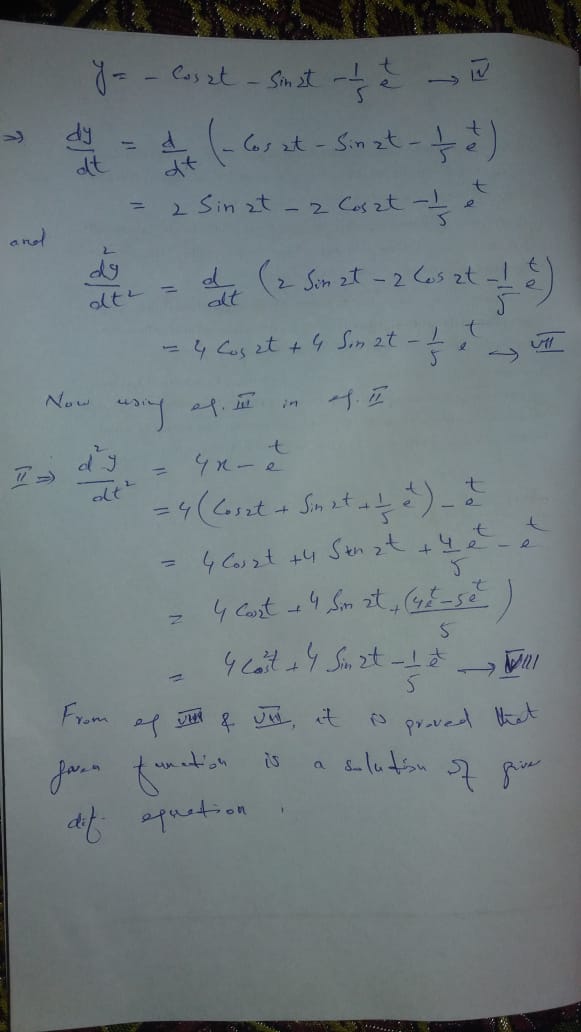 y = - Cos 2t - Sin 2t - 1/5 e^t → IV
⇒ dy/dt = d/dt (- Cos 2t - Sin 2t - 1/5 e^t)
= 2 Sin 2t - 2 Cos 2t - 1/5 e^t
and
d²y/dt² = d/dt (2 Sin 2t - 2 Cos 2t - 1/5 e^t)
= 4 Cos 2t + 4 Sin 2t - 1/5 e^t → VII
Now using eq. III in eq. II
II ⇒ d²y/dt² = 4x - e^t
= 4 (Cos 2t + Sin 2t + 1/5 e^t) - e^t
= 4 Cos 2t + 4 Sin 2t + 4/5 e^t - e^t
= 4 Cos 2t + 4 Sin 2t + (4e^t - 5e^t)/5
= 4 Cos 2t + 4 Sin 2t - 1/5 e^t → VIII
From eq VIII & VII, it is proved that
given function is a solution of give
dif. equation.